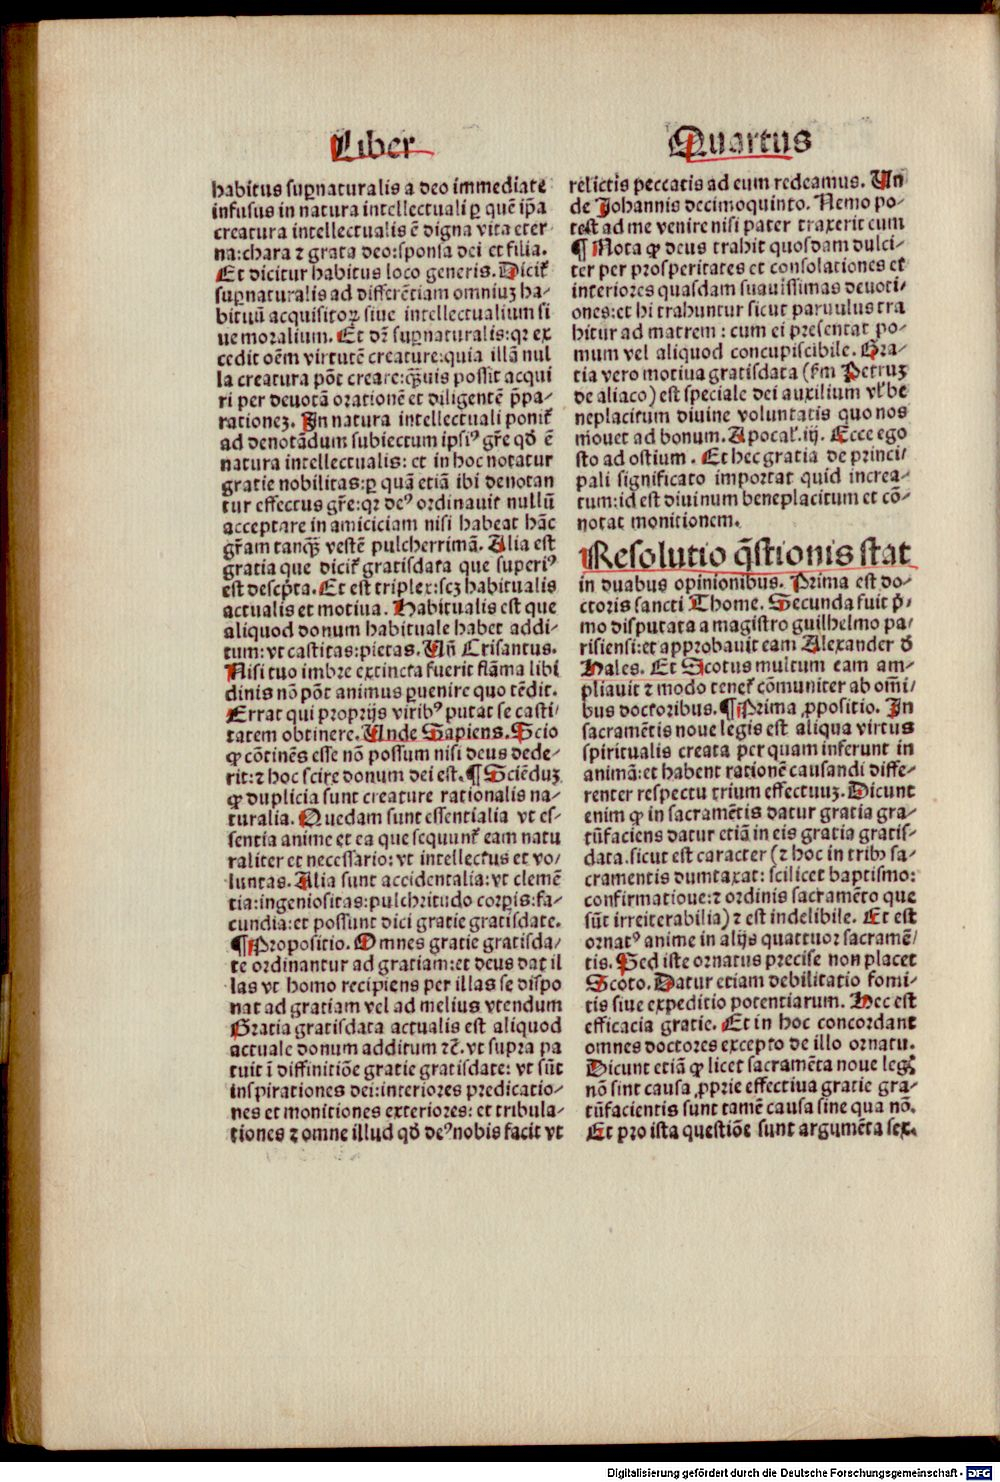 Liber
Quartus
habitus supꝛnaturalis a deo immediate
infusus in natura intellectuali ꝑ quē ip̄a
creatura intellectualis ē digna vita eter
na:chara ⁊ grata deo:sponsa dei et filia.
Et dicitur habitus loco generis. Dicit̃
supꝛnaturalis ad differētiam omniuꝫ ha⸗
bituū acquisitoꝝ siue intellectualium si
ue moralium. Et dr̄ supꝛnaturalis:qꝛ ex
cedit oēm virtutē creature:quia illā nul
la creatura pōt creare:q̄uis possit acqui
ri per deuotā orationē et diligentē p̄pa⸗
rationeꝫ. In natura intellectuali ponit̃
ad denotādum subiectum ipsiꝰ gr̄e qd̄ ē
natura intellectualis: et in hoc notatur
gratie nobilitas:ꝑ quā etiā ibi denotan
tur effectus gr̄e:qꝛ deꝰ ordinauit nullū
acceptare in amiciciam nisi habeat hāc
gr̄am tanq̄ vestē pulcherrimā. Alia est
gratia que dicit̃ gratisdata que superiꝰ
est descp̄ta. Et est triplex:scꝫ habitualis
actualis et motiua. Habitualis est que
aliquod donum habituale habet addi⸗
tum: vt castitas:pietas. Vn̄ Crisantus.
Nisi tuo imbre extincta fuerit flāma libi
dinis nō pōt animus ꝑuenire quo tēdit.
Errat qui proprijs viribꝰ putat se casti⸗
tatem obtinere. Unde Sapiens. Scio
ꝙ cōtinēs esse nō possum nisi deus dede⸗
rit:⁊ hoc scire donum dei est. ¶ Sciēduꝫ
ꝙ duplicia sunt creature rationalis na⸗
turalia. Quedam sunt essentialia vt es⸗
sentia anime et ea que sequunt̃ eam natu
raliter et necessario: vt intellectus et vo/
luntas. Alia sunt accidentalia: vt clemē
tia:ingeniositas:pulchritudo corꝑis:fa⸗
cundia: et possunt dici gratie gratisdate.
¶ Propositio. Omnes gratie gratisda/
te ordinantur ad gratiam:et deus dat il
las vt homo recipiens per illas se dispo
nat ad gratiam vel ad melius vtendum
Gratia gratisdata actualis est aliquod
actuale donum additum ⁊c̄. vt supra pa
tuit ī diffinitiōe gratie gratisdate: vt sūt
inspirationes dei:interiores predicatio⸗
nes et monitiones exteriores: et tribula⸗
tiones ⁊ omne illud qd̄ deꝰ nobis facit vt
relictis peccatis ad eum redeamus. Un
de Johannis decimoquinto. Nemo po⸗
test ad me venire nisi pater traxerit eum
¶ Nota ꝙ deus trahit quosdam dulci⸗
ter per prosperitates et consolationes et
interiores quasdam suauissimas deuoti⸗
ones: et hi trahuntur sicut paruulus tra
hitur ad matrem : cum ei presentat po⸗
mum vel aliquod concupiscibile. Gra⸗
tia vero motiua gratisdata (ẜm Petruꝫ
de aliaco) est speciale dei auxilium vl̓ be
neplacitum diuine voluntatis quo nos
mouet ad bonum. Apocal̓. iij. Ecce ego
sto ad ostium . Et hec gratia de princi⸗
pali significato importat quid increa⸗
tum:id est diuinum beneplacitum et cō⸗
notat monitionem.
Resolutio q̄stionis stat
in duabus opinionibus. Prima est do⸗
ctoris sancti Thome. Secunda fuit p̄⸗
mo disputata a magistro guilhelmo pa⸗
risiensi: et approbauit eam Alexander d̄
Hales. Et Scotus multum eam am⸗
pliauit ⁊ modo tenet̃ cōmuniter ab om̄i/
bus doctoribus. ¶ Prima ꝓpositio. In
sacramētis noue legis est aliqua virtus
spiritualis creata per quam inferunt in
animā: et habent rationē causandi diffe⸗
renter respectu trium effectuuꝫ. Dicunt
enim ꝙ in sacramētis datur gratia gra⸗
tūfaciens datur etiā in eis gratia gratis⸗
data. sicut est caracter (⁊ hoc in tribꝫ sa⸗
cramentis dumtaxat: scilicet baptismo:
confirmatioue:⁊ ordinis sacramēto que
sūt irreiterabilia) ⁊ est indelibile. Et est
ornatꝰ anime in alijs quattuor sacramē/
tis. Sed iste ornatus precise non placet
Scoto. Datur etiam debilitatio fomi⸗
tis siue expeditio potentiarum. Hec est
efficacia gratie. Et in hoc concordant
omnes doctores excepto de illo ornatu.
Dicunt etiā ꝙ licet sacramēta noue leg̓
nō sint causa ꝓprie effectiua gratie gra⸗
tūfacientis sunt tamē causa sine qua nō.
Et pro ista questiōe sunt argumēta sex.
Digitalisierung gefördert durch die Deutsche Forschungsgemeinschaft - DFG